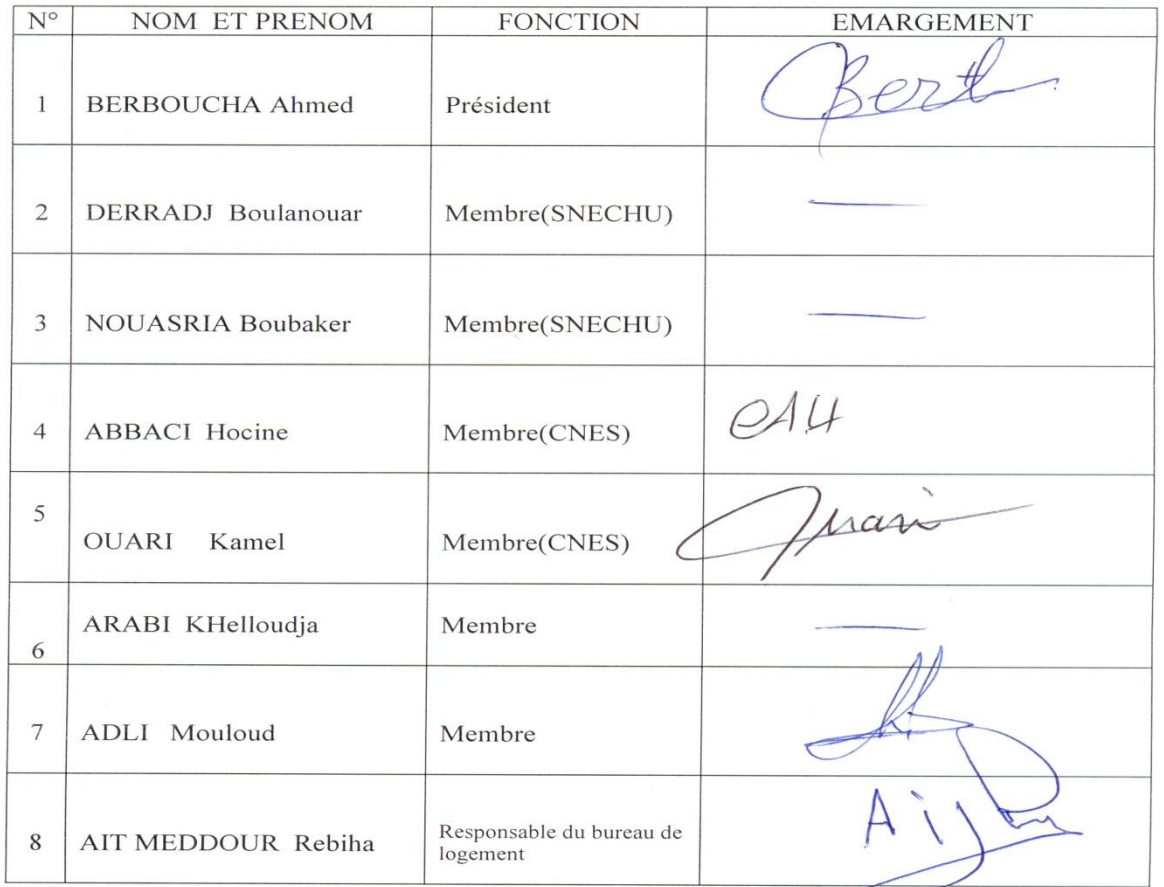 N° NOM ET PRENOM FONCTION EMARGEMENT
1 BERBOUCHA Ahmed Président Bert
2 DERRADJ Boulanouar Membre(SNECHU) —
3 NOUASRIA Boubaker Membre(SNECHU) —
4 ABBACI Hocine Membre(CNES)
5 OUARI Kamel Membre(CNES)
6 ARABI KHelloudja Membre —
7 ADLI Mouloud Membre
8 AIT MEDDOUR Rebiha Responsable du bureau de
logement